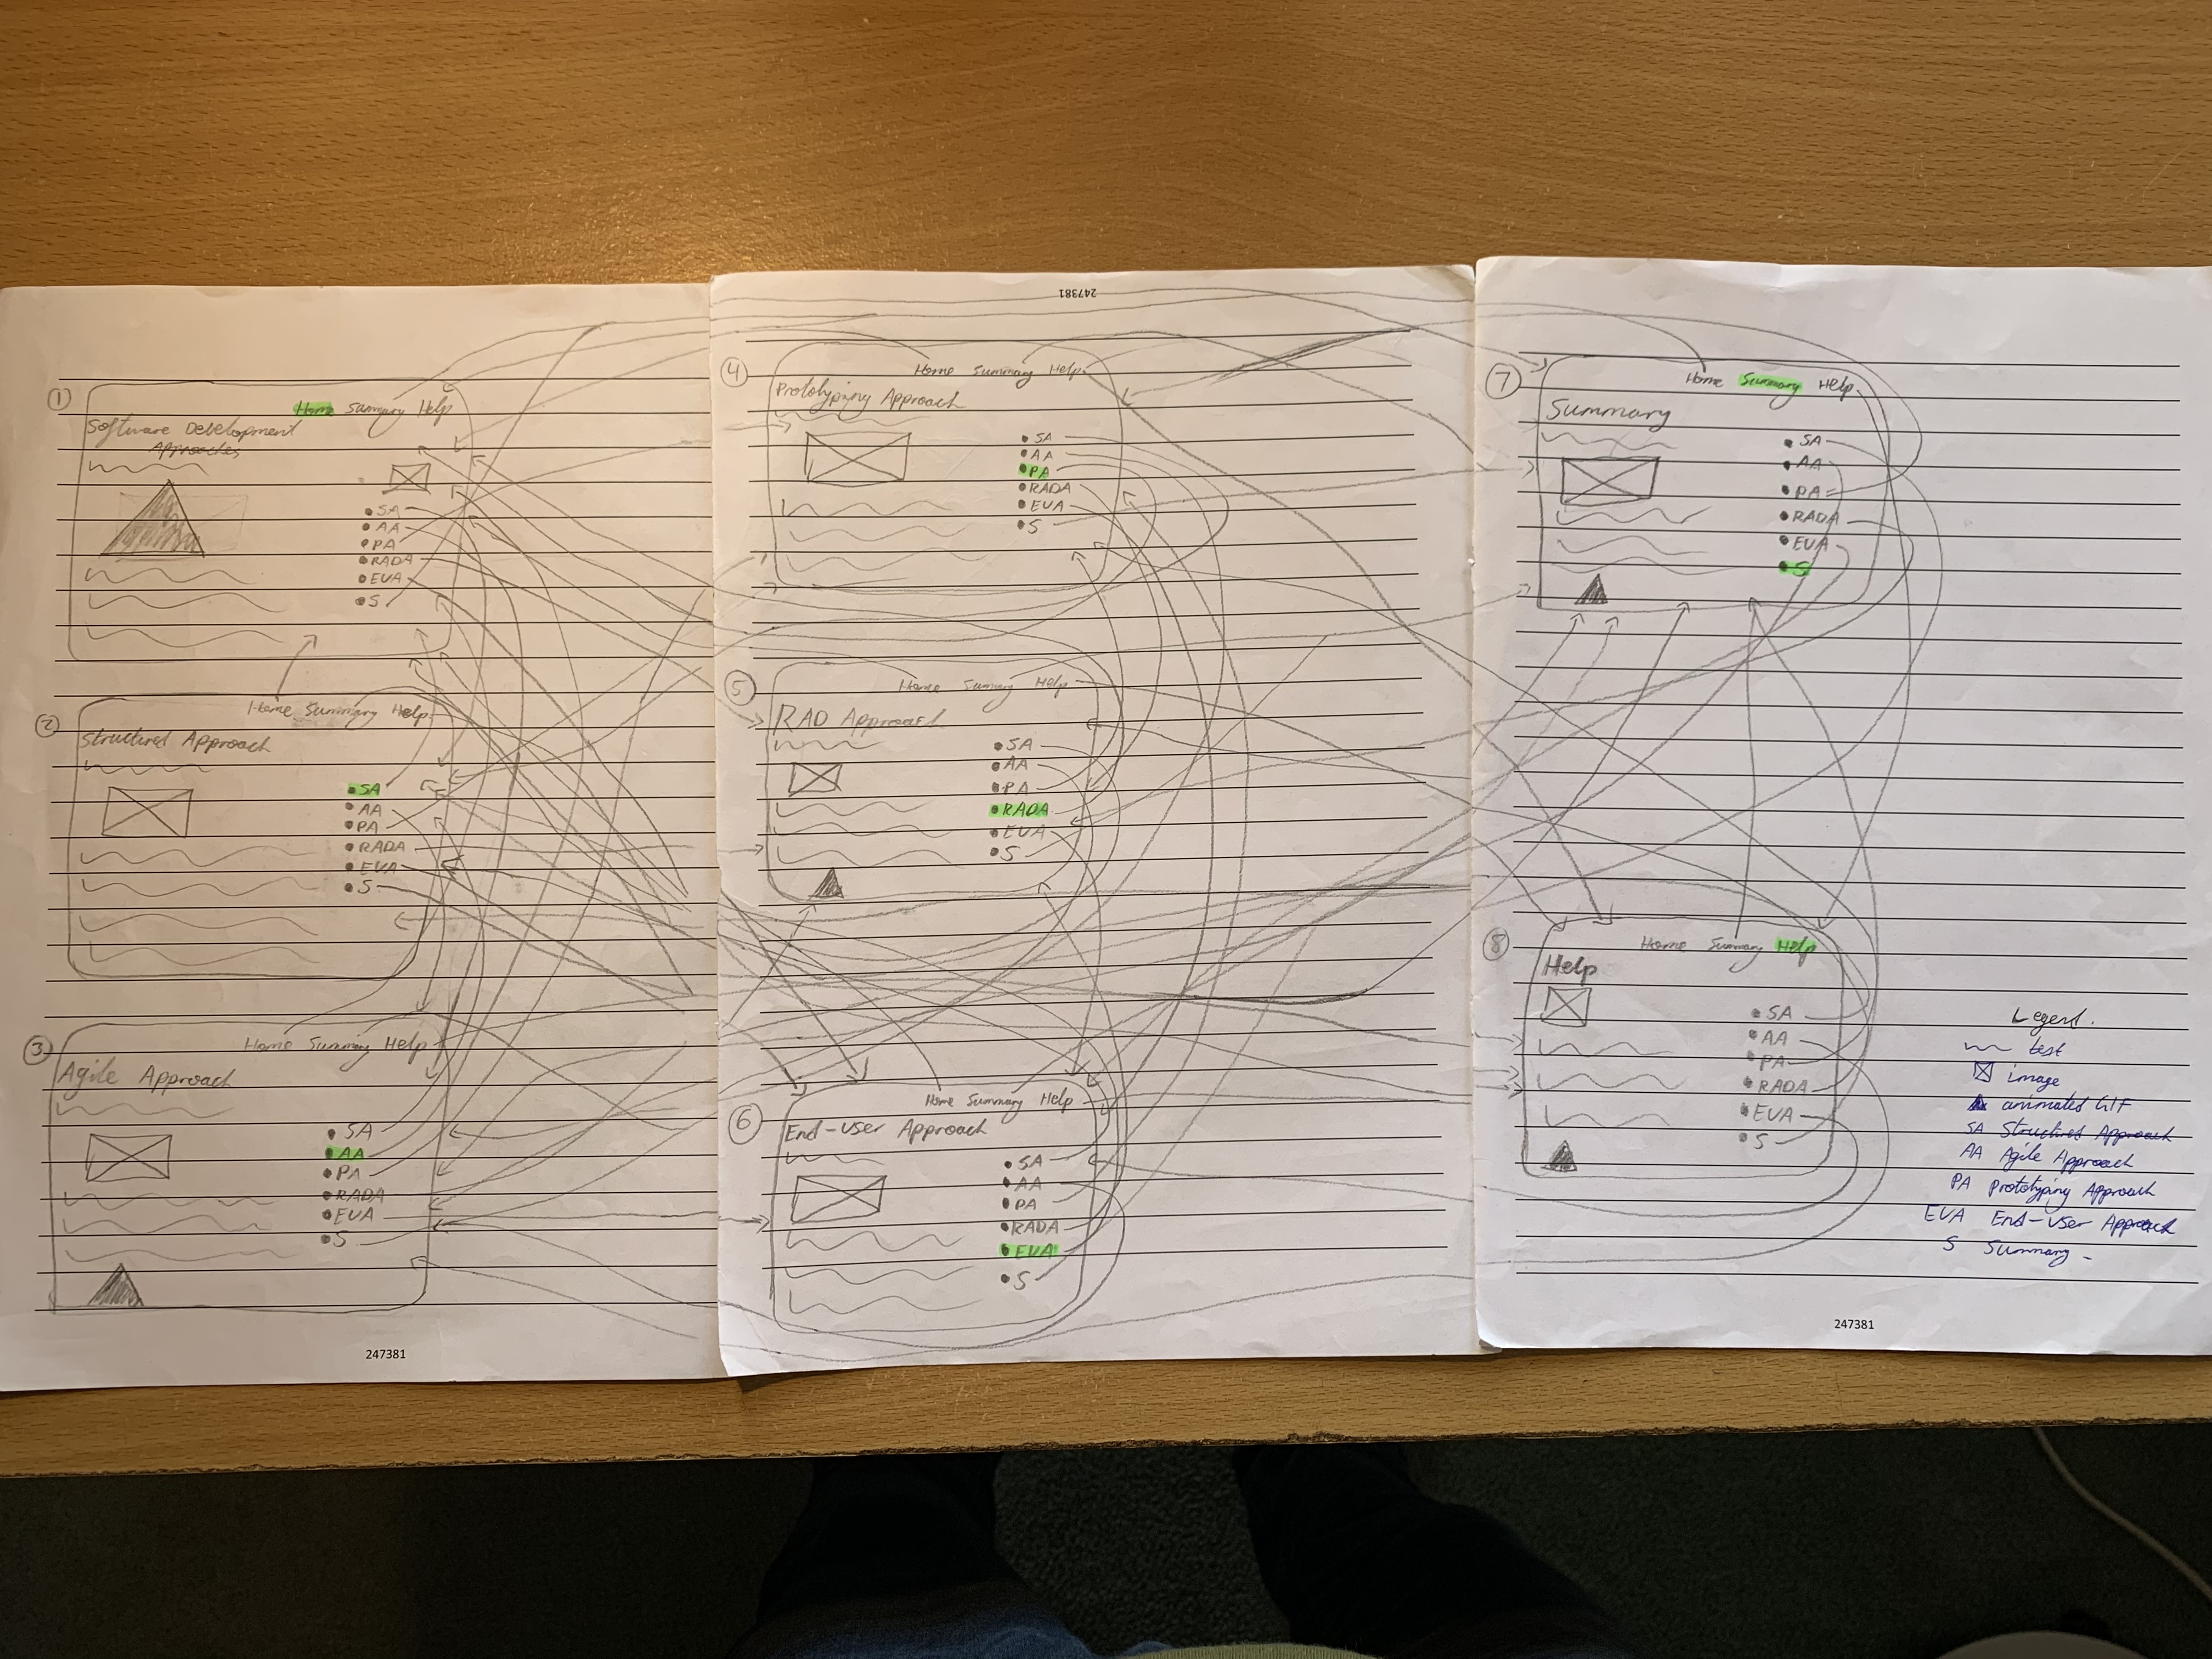 ①
Home Summary Help
Software Development
Approaches
• SA
• AA
• PA
• RADA
• EUA
• S
②
Home Summary Help
Structured Approach
• SA
• AA
• PA
• RADA
• EUA
• S
③
Home Summary Help
Agile Approach
• SA
• AA
• PA
• RADA
• EUA
• S
247381
247381
④
Home Summary Help
Prototyping Approach
• SA
• AA
• PA
• RADA
• EUA
• S
⑤
Home Summary Help
RAD Approach
• SA
• AA
• PA
• RADA
• EUA
• S
⑥
Home Summary Help
End-user Approach
• SA
• AA
• PA
• RADA
• EUA
• S
⑦
Home Summary Help
Summary
• SA
• AA
• PA
• RADA
• EUA
• S
⑧
Home Summary Help
Help
• SA
• AA
• PA
• RADA
• EUA
• S
Legend.
text
image
animated GIF
SA Structured Approach
AA Agile Approach
PA Prototyping Approach
EUA End-user Approach
S Summary
247381